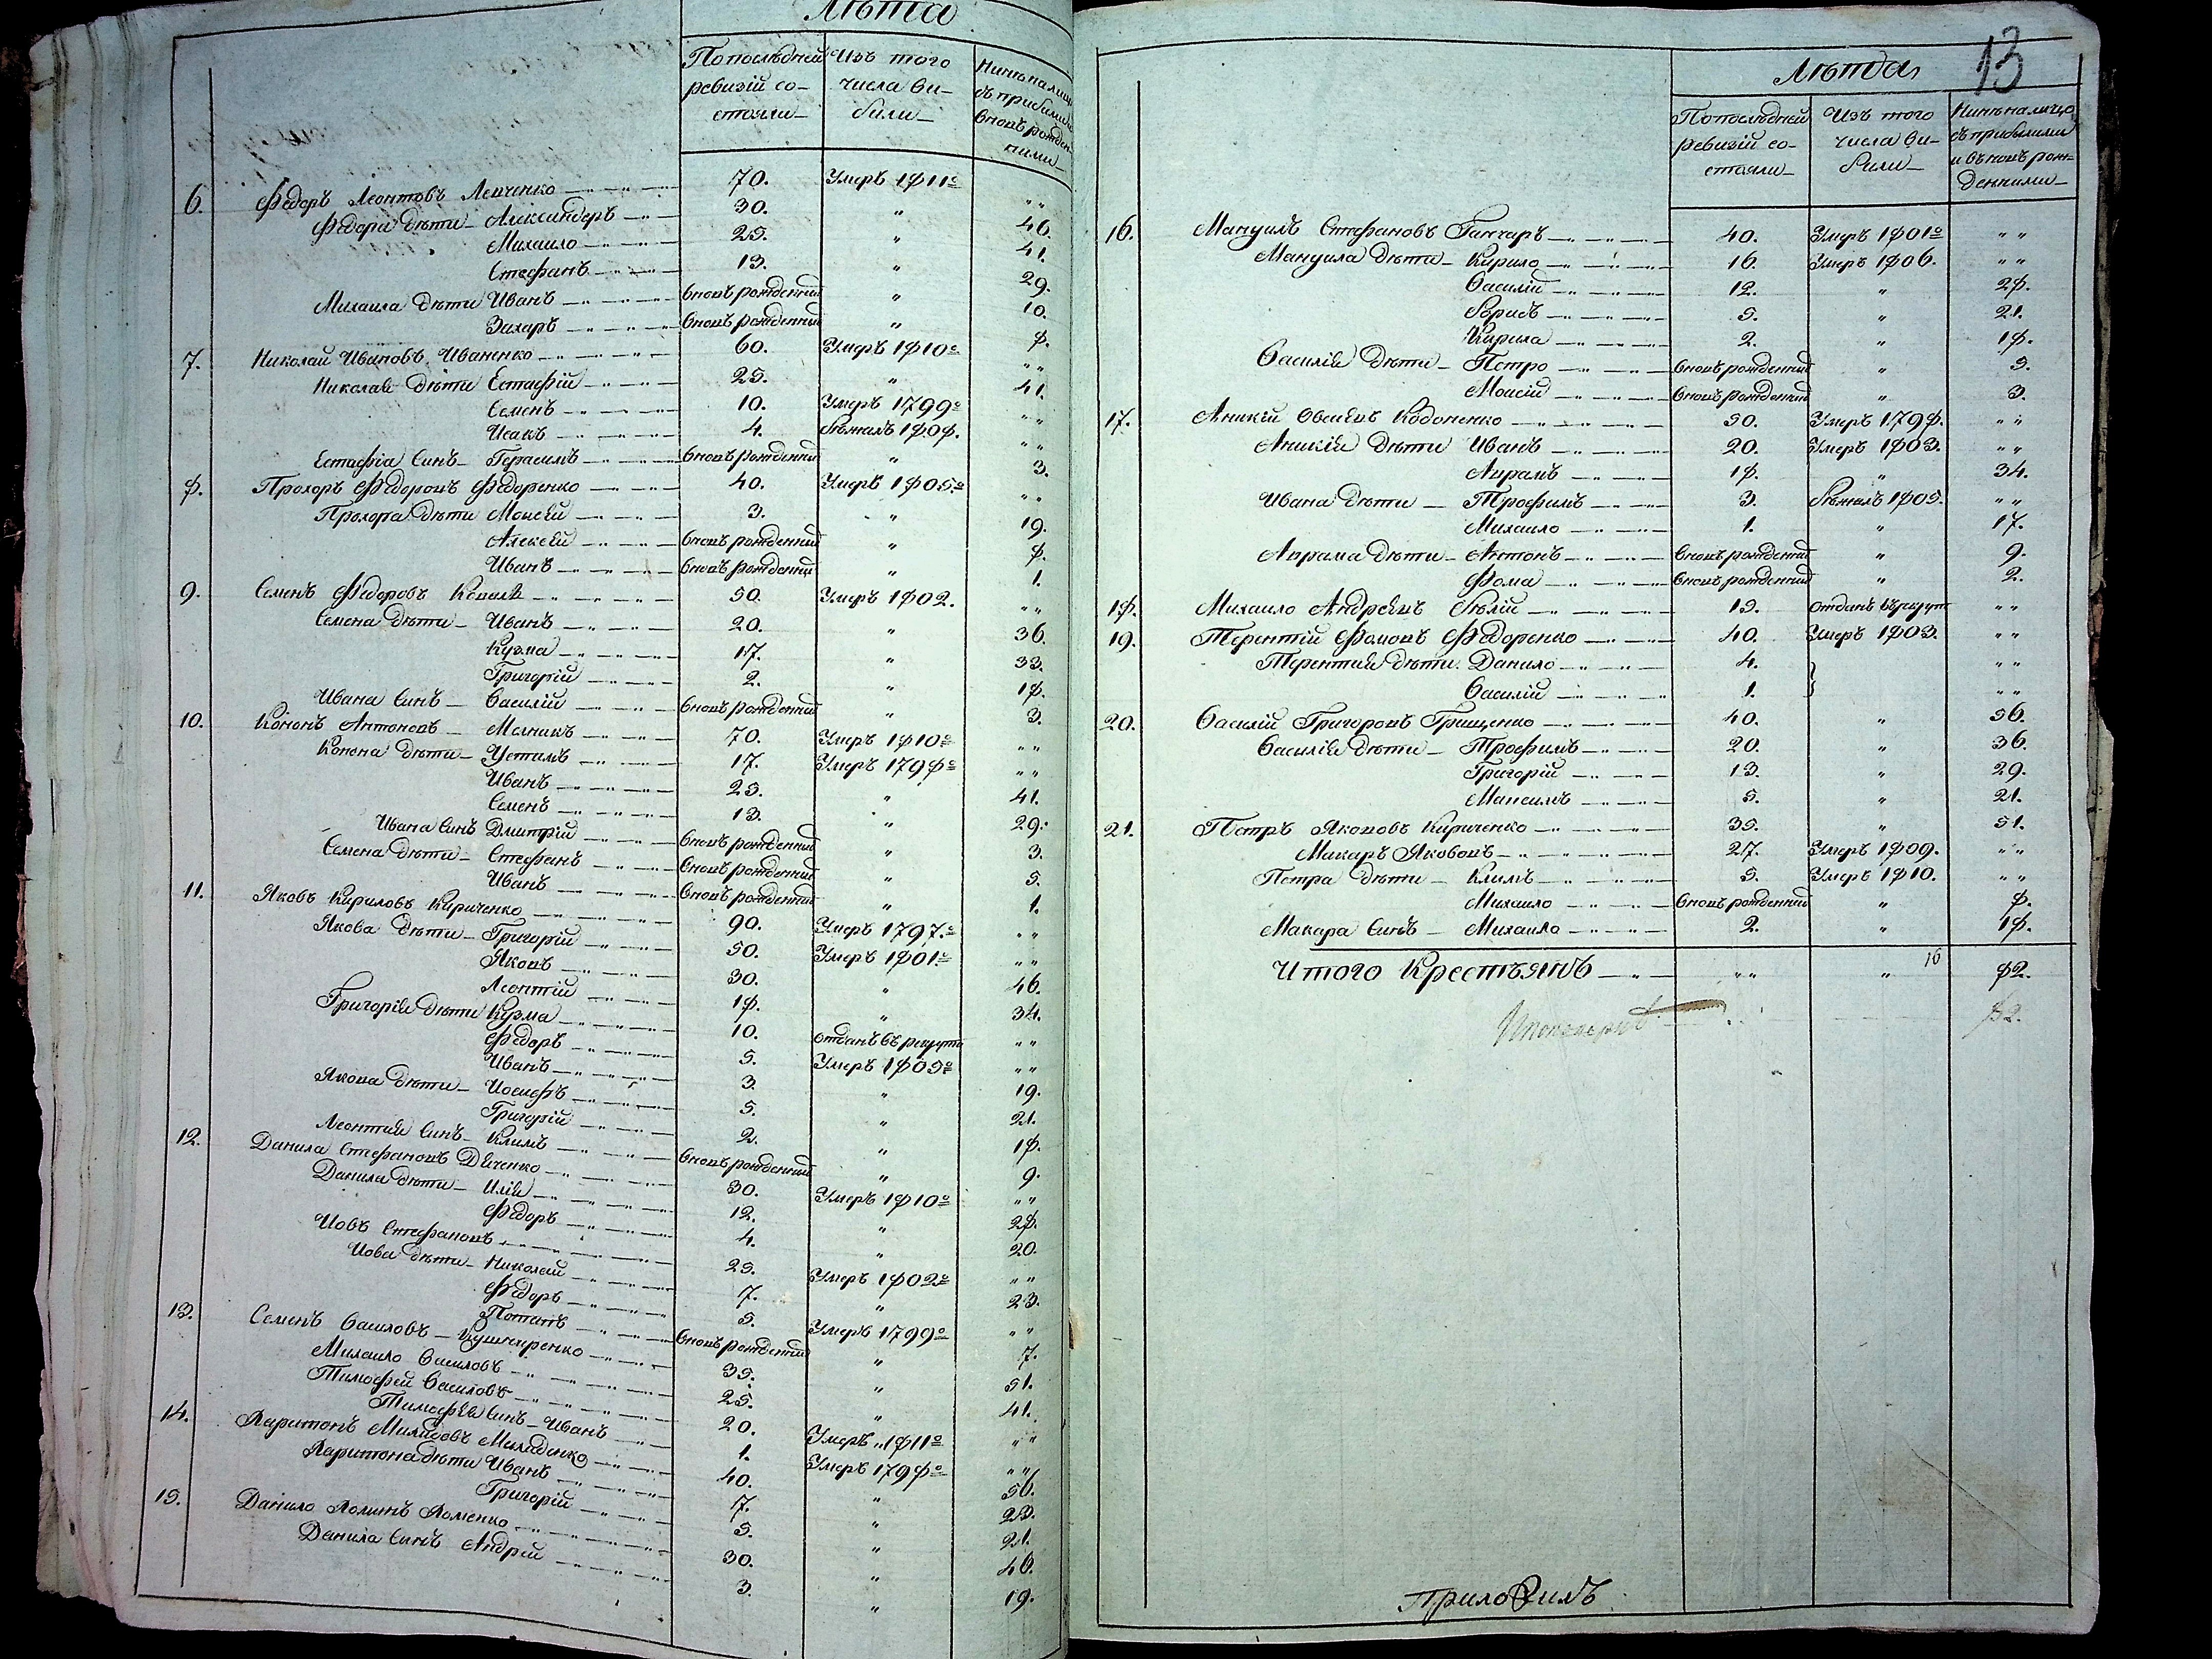 Лѣта
Попослѣдней ревизій состояли
Изъ того числа выбили
Нинѣ налицо съ прибилими вновь рожденними
6. Федоръ Леонтовъ Левченко 70. Умеръ 1811го „ „
Федора дѣти Александеръ 30. „ 46.
Михаило 25. „ 41.
Стефанъ 13. „ 29.
Михаила дѣти Иванъ вновь рожденний „ 10.
Захаръ вновь рожденний „ 8.
7. Николай Ивановъ Иваненко 60. Умеръ 1810го „ „
Николая дѣти Естафій 25. „ 41.
Семенъ 10. Умеръ 1799го „ „
Исакъ 4. бѣжалъ 1808. „ „
Естафіа синъ Герасимъ вновь рожденний „ 3.
8. Прохоръ Федоровъ Федоренко 40. Умеръ 1805го „ „
Прохора дѣти Моисей 3. „ 19.
Алексей вновь рожденний „ 8.
Иванъ вновь рожденний „ 1.
9. Семенъ Федоровъ Коваль 50. Умеръ 1802. „ „
Семена дѣти Иванъ 20. „ 36.
Кузма 17. „ 33.
Григорій 2. „ 18.
Ивана синъ Василій вновь рожденний „ 3.
10. Кононъ Антоновъ Мелникъ 70. Умеръ 1810го „ „
Конона дѣти Устимъ 17. Умеръ 1798го „ „
Иванъ 25. „ 41.
Семенъ 13. „ 29.
Ивана синъ Дмитрій вновь рожденний „ 3.
Семена дѣти Стефанъ вновь рожденний „ 5.
Иванъ вновь рожденний „ 1.
11. Яковъ Кириловъ Кириченко 90. Умеръ 1797го „ „
Якова дѣти Григорій 50. Умеръ 1801го „ „
Яковъ 30. „ 46.
Леонтій 18. „ 34.
Григорія дѣти Кузма 10. отданъ въ рекруты „ „
Федоръ 5. Умеръ 1805го „ „
Иванъ 3. „ 19.
Якова дѣти Иосифъ 5. „ 21.
Григорій 2. „ 18.
Леонтия синъ Климъ вновь рожденний „ 9.
12. Данила Стефановъ Дяченко 30. Умеръ 1810го „ „
Данила дѣти Илія 12. „ 28.
Федоръ 4. „ 20.
Иовъ Стефановъ 25. Умеръ 1802го „ „
Иова дѣти Николай 7. „ 23.
Федоръ 5. Умеръ 1799го „ „
Потапъ вновь рожденний „ 7.
13. Семенъ Василовъ Кушниренко 35. „ 51.
Михаило Василовъ 25. „ 41.
Тимофей Василовъ 20. Умеръ 1811го „ „
Тимофѣя синъ Иванъ 1. Умеръ 1798го „ „
14. Харитонъ 40. „ 56.
Харитона дѣти Иванъ 7. „ 23.
Григорій 5. „ 21.
15. Данило Хоминъ Хоменко 30. „ 46.
Данила синъ Андрей 3. „ 19.
13
Лѣта
Попослѣдней ревизій состояли
Изъ того числа выбили
Нинѣ налицо съ прибилими и вновь рожденними
16. Мануилъ Стефановъ Ганчаръ 40. Умеръ 1801го „ „
Мануила дѣти Кирило 16. Умеръ 1806. „ „
Василій 12. „ 28.
Борисъ 5. „ 21.
Кирила 2. „ 18.
Василія дѣти Петро вновь рожденний „ 5.
Моисій вновь рожденний „ 3.
17. Аникій Овсѣевъ 50. Умеръ 1798. „ „
Аникія дѣти Иванъ 20. Умеръ 1803. „ „
Аврамъ 18. „ 34.
Ивана дѣти Трофимъ 3. бѣжалъ 1805. „ „
Михаило 1. „ 17.
Аврама дѣти Антонъ вновь рожденний „ 9.
Фома вновь рожденний „ 2.
18. Михаило Андрѣевъ Бѣлій 15. отданъ въ рекрут „ „
19. Терентій Фомовъ Федоренко 40. Умеръ 1803. „ „
Терентия дѣти Данило 4. „ „
Василій 1. „ „
20. Василій Григоровъ Грищенко 40. „ 56.
Василія дѣти Трофимъ 20. „ 36.
Григорій 13. „ 29.
Максимъ 5. „ 21.
21. Петръ Якововъ Кириченко 35. „ 51.
Макаръ Якововъ 27. Умеръ 1809. „ „
Петра дѣти Климъ 5. Умеръ 1810. „ „
Михаило вновь рожденний „ 8.
Макара синъ Михаило 2. „ 18.
Итого Крестьянъ „ „ „ 16 82.
82.
приложилъ